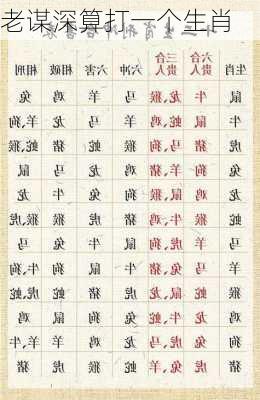 老谋深算打一个生肖
生肖 六合贵人 三合贵人 六冲 六害 相破 相刑
鼠 牛 龙,猴 马 羊 鸡 兔
牛 鼠 蛇,鸡 羊 马 龙 羊,狗
虎 猪 马,狗 猴 蛇 猪 蛇,猴
兔 狗 羊,猪 鸡 龙 马 鼠
龙 鸡 鼠,猴 狗 兔 牛 龙
蛇 猴 牛,鸡 猪 虎 猴 虎,猴
马 羊 虎,狗 鼠 牛 兔 马
羊 马 兔,猪 牛 鼠 狗 牛,狗
猴 蛇 鼠,龙 虎 猪 蛇 虎,蛇
鸡 龙 牛,蛇 兔 狗 鼠 鸡
狗 兔 虎,马 龙 鸡 羊 牛,羊
猪 虎 兔,羊 蛇 猴 虎 猪